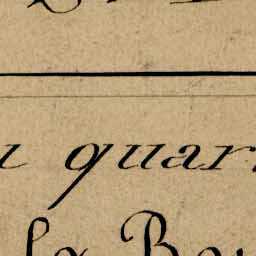 u quar
la Bo